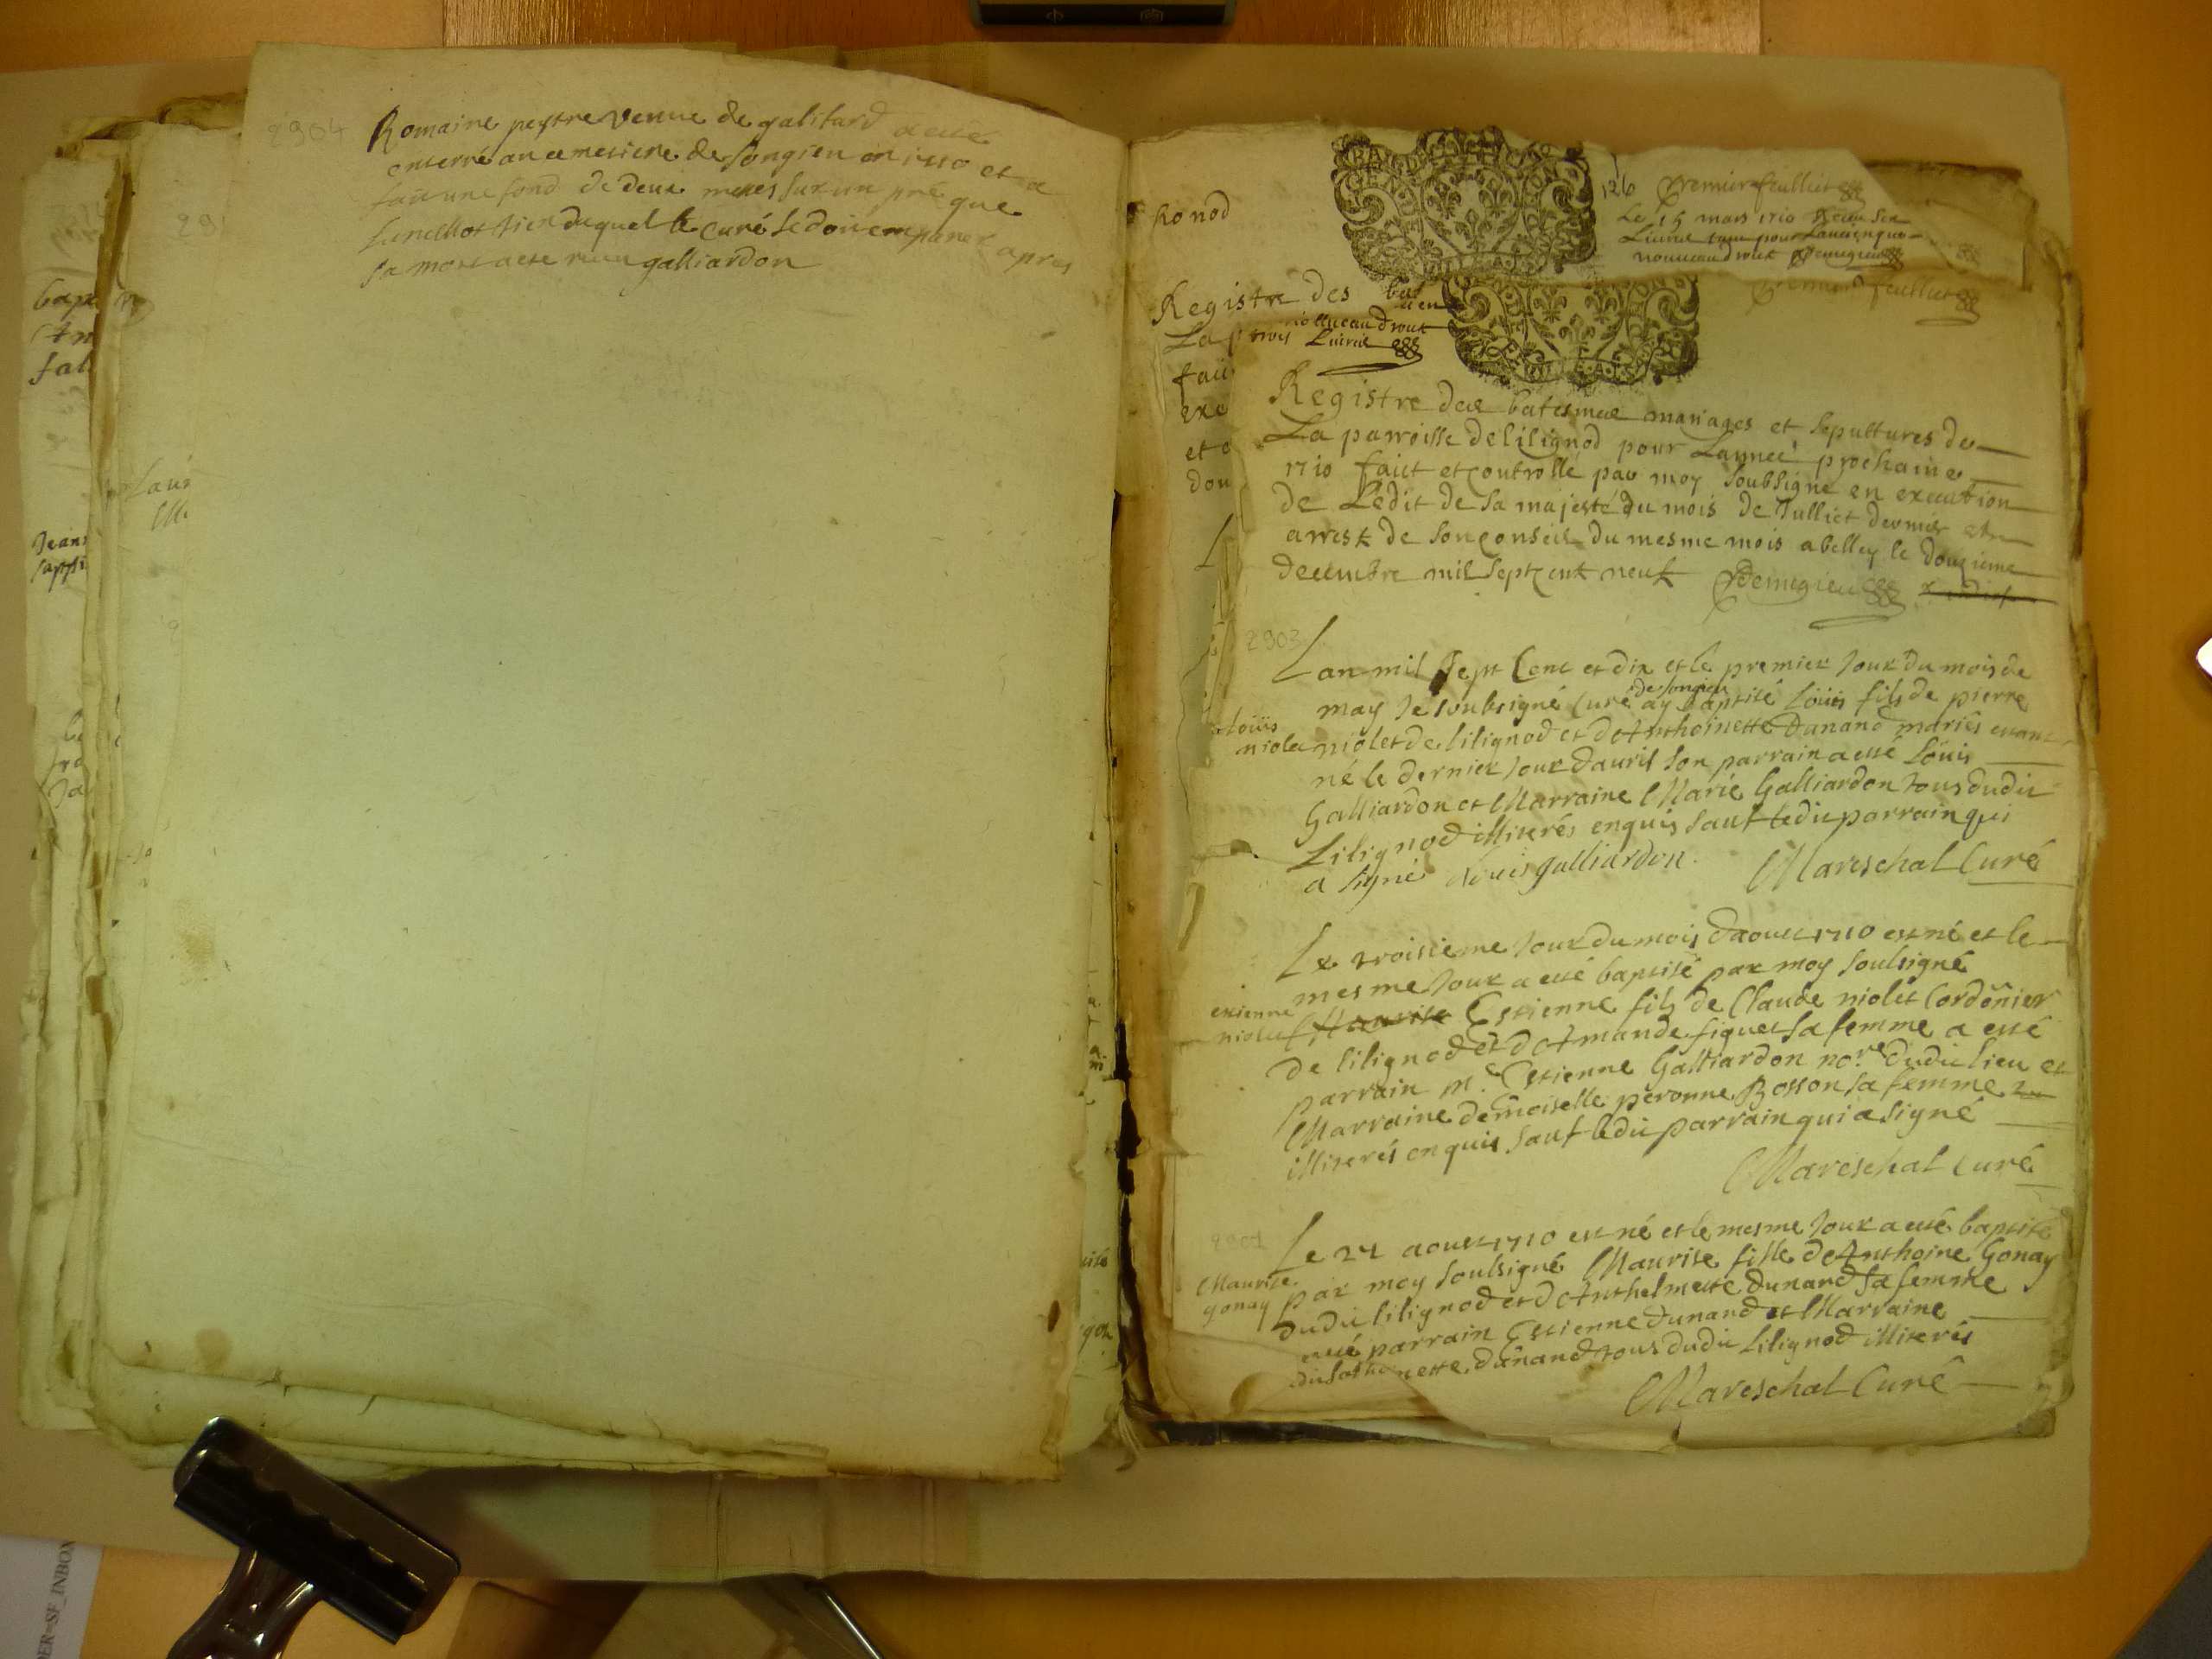 2904
Romaine peytre venue de galifard a esté
enterré au cemetiere de Songieu en 1550 et a
fait une fond de deux mesures sur un pré que
duquel le curé se doit emparer apres
sa mort galliardon
honod
126 premier feulliet
Le 15 mars 1710
Livres pour
nouveau droit Demegieu
Registre des
La
nouveau droit
trois Livres
premier feulliet
Registre des batesmes mariages et sepultures de
La parroisse de lilignod pour Lannee prochaine
1710 faict et controllé par moy soubsigné en execution
de Ledit de sa majesté du mois de Julliet dernier et
arrest de son conseil du mesme mois a belley le douzieme
decembre mil sept cent neuf Demegieu
2903
Lan mil sept Cent et dix et le premier Jour du mois de
de songieu
may Je soubsigné Curé ay baptisé Loüis fils de pierre
Loüis
niolet
niolet de lilignod et d'Anthoinette Dunand mariés estant
né le dernier Jour d'avril son parrain a esté Loüis
Galliardon et Marraine Marie Galliardon tous dudit
Lilignod illiterés enquis sauf ledit parrain qui
a signé Louis galliardon. Mareschal Curé
Le troisieme Jour du mois d'aoust 1710 est né et le
mesme Jour a esté baptisé par moy soulsigné
estienne
niolet
Maurise Estienne fils de Claude niolet Cordonier
de lilignod et d'Amande figuet sa femme a esté
parrain me. Estienne Galliardon nore. dudit lieu et
Marraine demoiselle peronne Bosson sa femme
illiterés enquis sauf ledit parrain qui a signé
Mareschal Curé
Le 27 aoust 1710 est né et le mesme Jour a esté baptisé
Maurise
gonay
par moy soulsigné Maurise fille de Anthoine Gonay
dudit lilignod et d'Anthelmette Dunand sa femme
esté parrain Estienne Dunand et Marraine
Dunand tous dudit Lilignod illiterés
Mareschal Curé